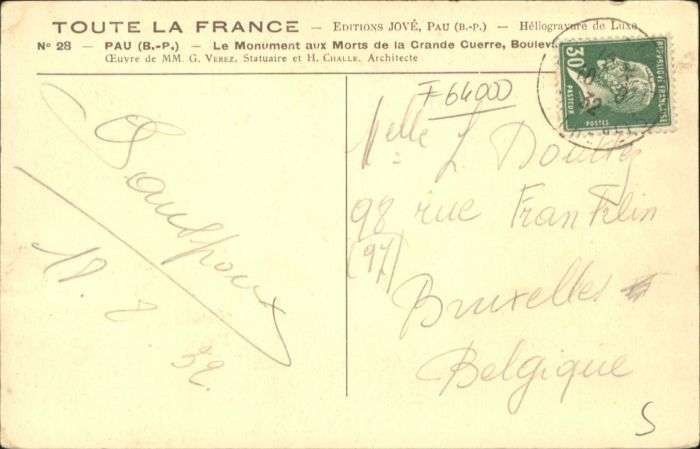 TOUTE LA FRANCE — EDITIONS JOVÉ, PAU (B.-P.) — Héliogravure de Luxe
No 28 — PAU (B.-P.) — Le Monument aux Morts de la Grande Guerre, Boulev
Œuvre de MM. G. VEREZ, Statuaire et H. CHALLE, Architecte
F64000
30c
REPUBLIQUE FRANÇAISE
PASTEUR
POSTES
18. 7. 32.
Melle L.
98 rue Franklin
(97)
Bruxelles
Belgique
S